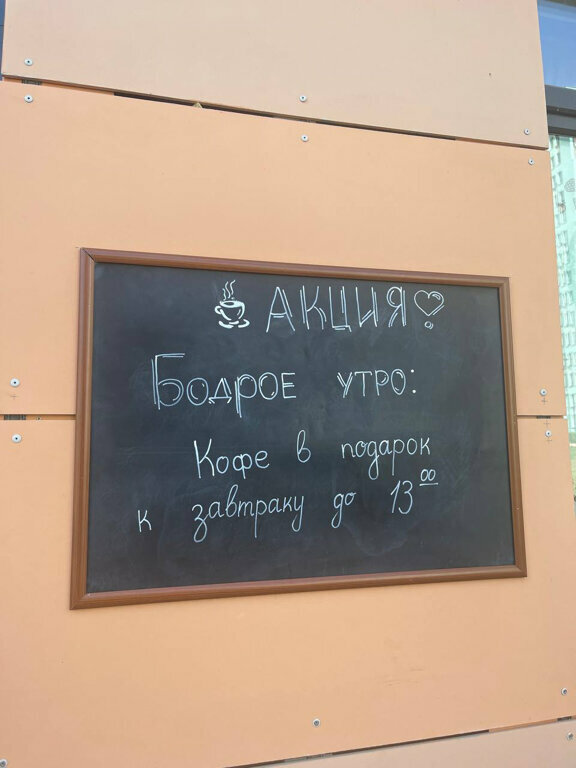 АКЦИЯ
Бодрое утро:
Кофе в подарок
к завтраку до 13⁰⁰